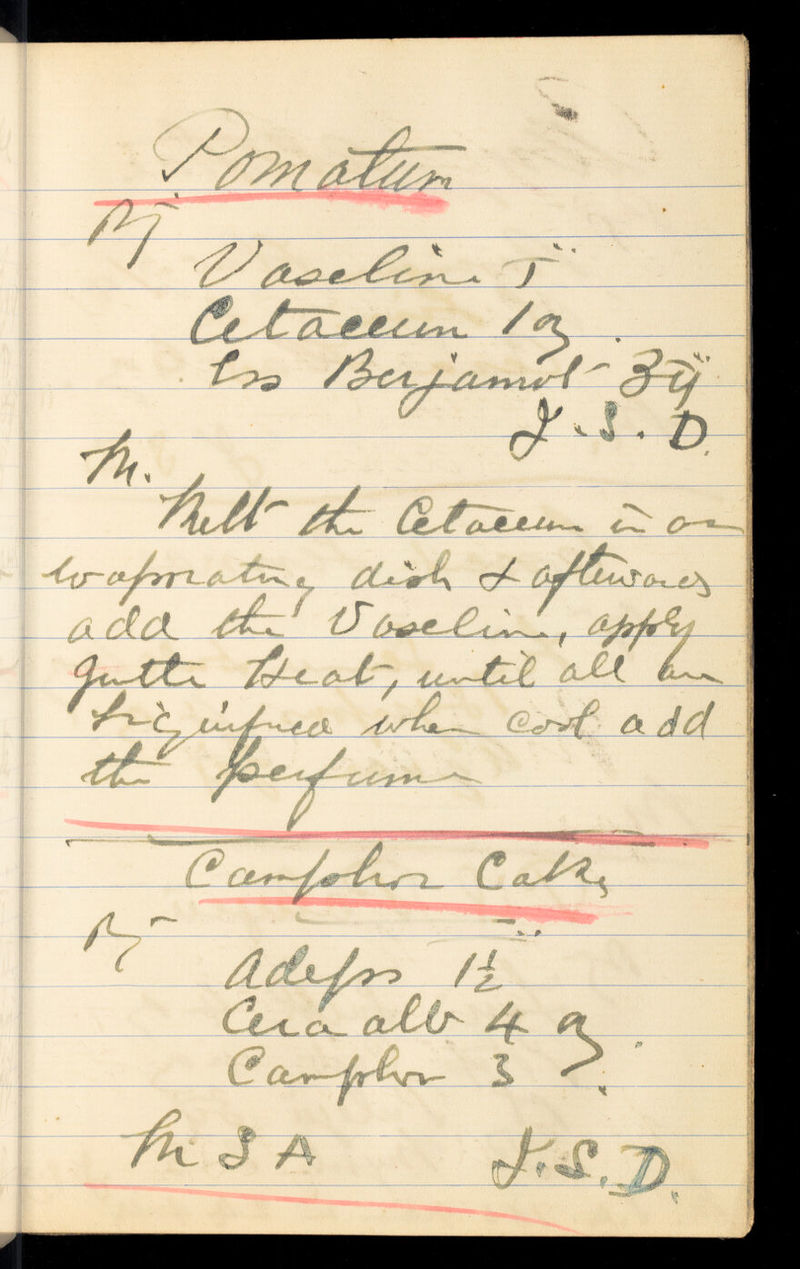 Pomatum
Rx
Vaseline
Cetaceum 1 oz
Ess Berjamot ʒij
J. S. D.
M.
Melt the Cetaceum in an
evaporating dish & afterwards
add the Vaseline, apply
gentle Heat, until all are
liquified when cool add
the perfume
Camphor Cake
Rx
Adeps 1½
Cera alb 4 oz
Camphor 3
M S A J. S. D.